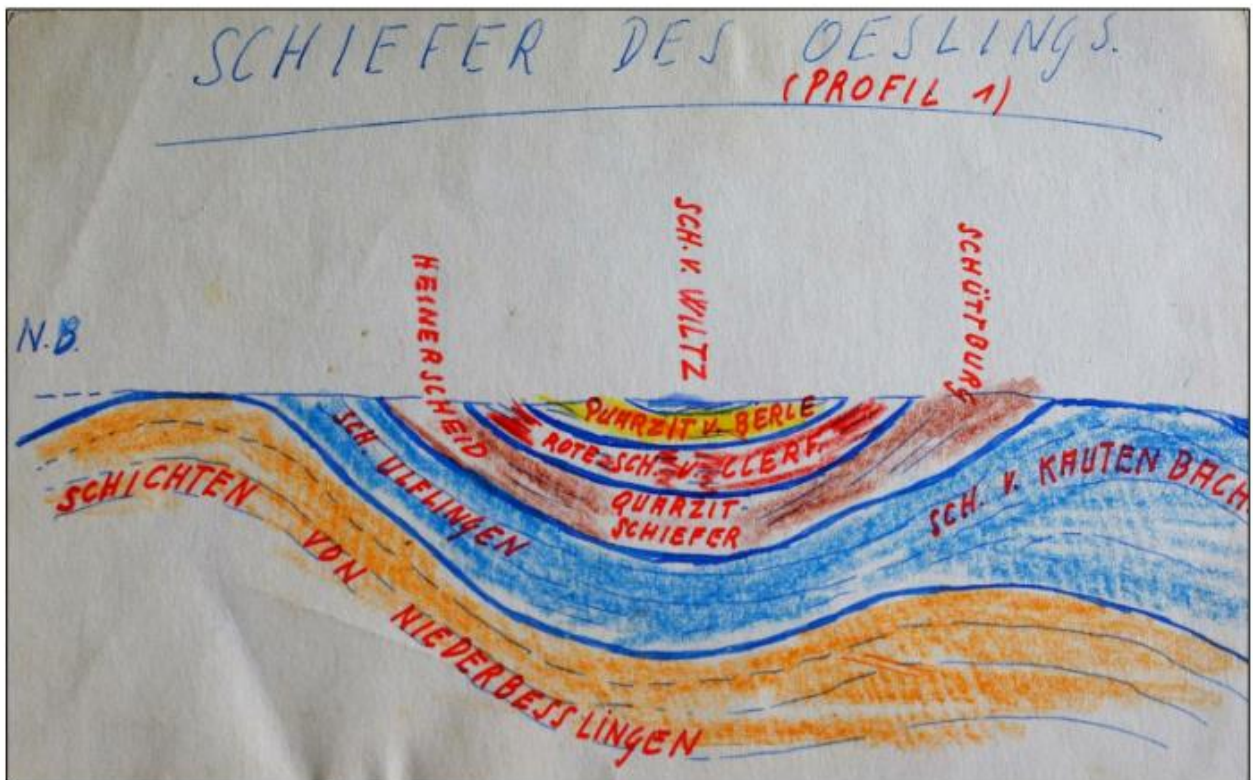 SCHIEFER DES OESLINGS.
(PROFIL 1)
N.B.
HEINERSCHEID
SCH. V. WILTZ
SCHÜTTBURG
QUARZIT V. BERLE
ROTE-SCH. V. CLERF.
QUARZIT-
SCHIEFER
SCH. ULFLINGEN
SCH. V. KAUTENBACH
SCHICHTEN VON NIEDERBESSLINGEN